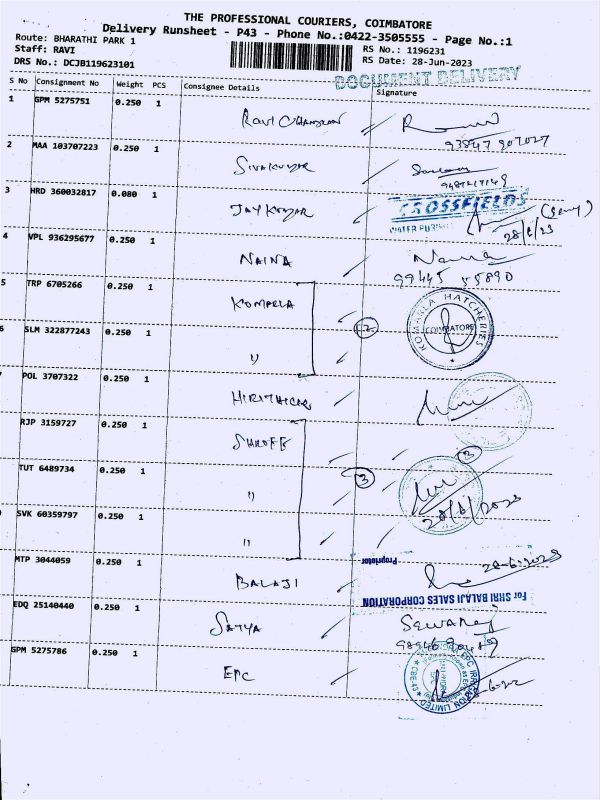 THE PROFESSIONAL COURIERS, COIMBATORE
Delivery Runsheet - P43 - Phone No.:0422-3505555 - Page No.:1
Route: BHARATHI PARK 1
RS No.: 1196231
Staff: RAVI
RS Date: 28-Jun-2023
DRS No.: DCJB119623101
DOCUMENT DELIVERY
S No Consignment No Weight PCS Consignee Details Signature
1 GPM 5275751 0.250 1 RAVI CHANDRAN
2 MAA 103707223 0.250 1 SIVAKUMAR
3 HRD 360032817 0.080 1 JAYKUMAR CROSSFIELDS
WATER
28/6/23
4 VPL 936295677 0.250 1 NAINA Naina
99445 55890
5 TRP 6705266 0.250 1 KOMARLA
KOMARLA HATCHERIES
COIMBATORE
6 SLM 322877243 0.250 1 "
12
7 POL 3707322 0.250 1
RJP 3159727 0.250 1 SHROFF
TUT 6489734 0.250 1 " 3 3
28/6/2023
SVK 60359797 0.250 1 "
Proprietor
MTP 3044059 0.250 1 BALAJI 28-6-2023
For SHRI BALAJI SALES CORPORATION
EDQ 25140440 0.250 1 SATYA
GPM 5275786 0.250 1 EPC